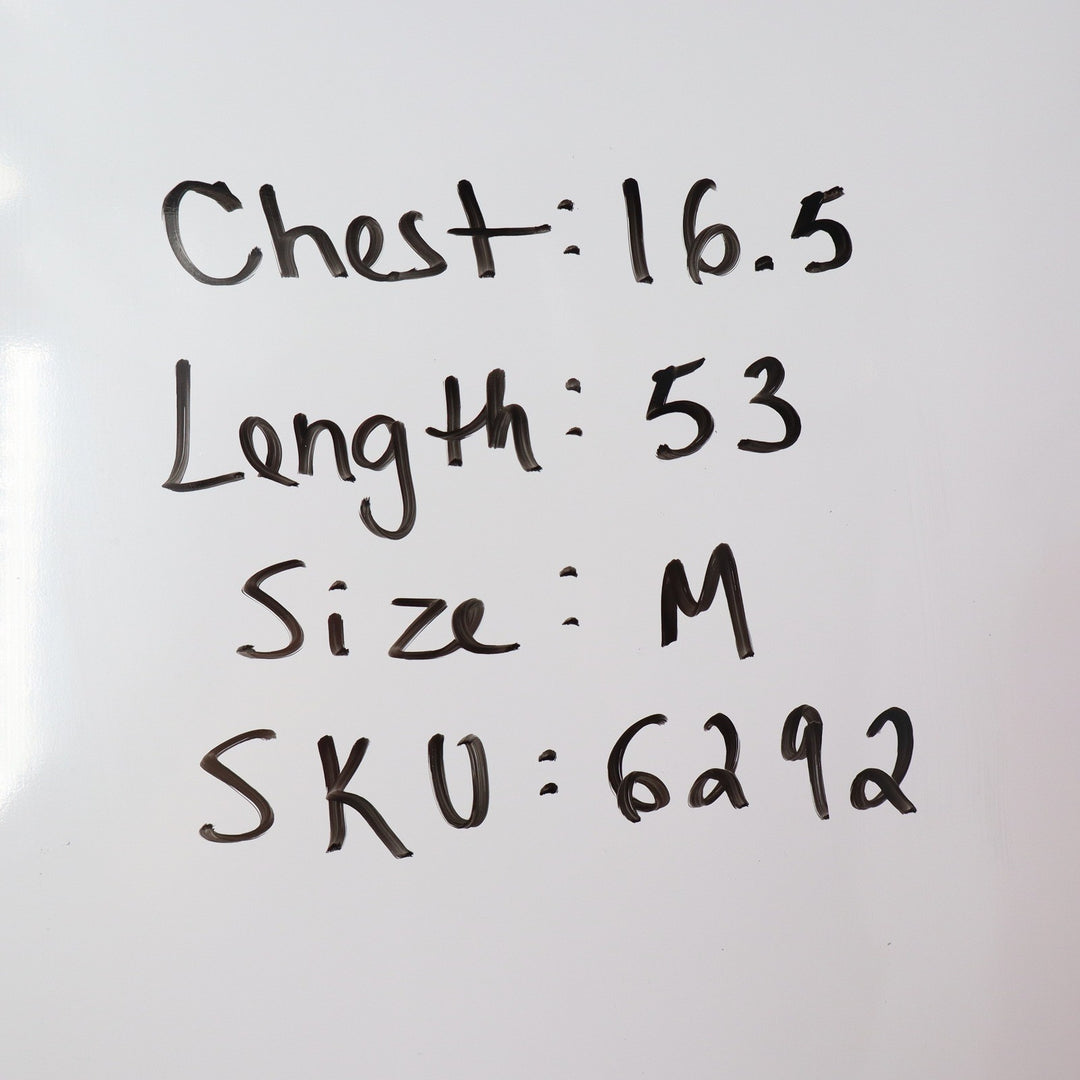 Chest: 16.5
Length: 53
Size: M
SKU: 6292